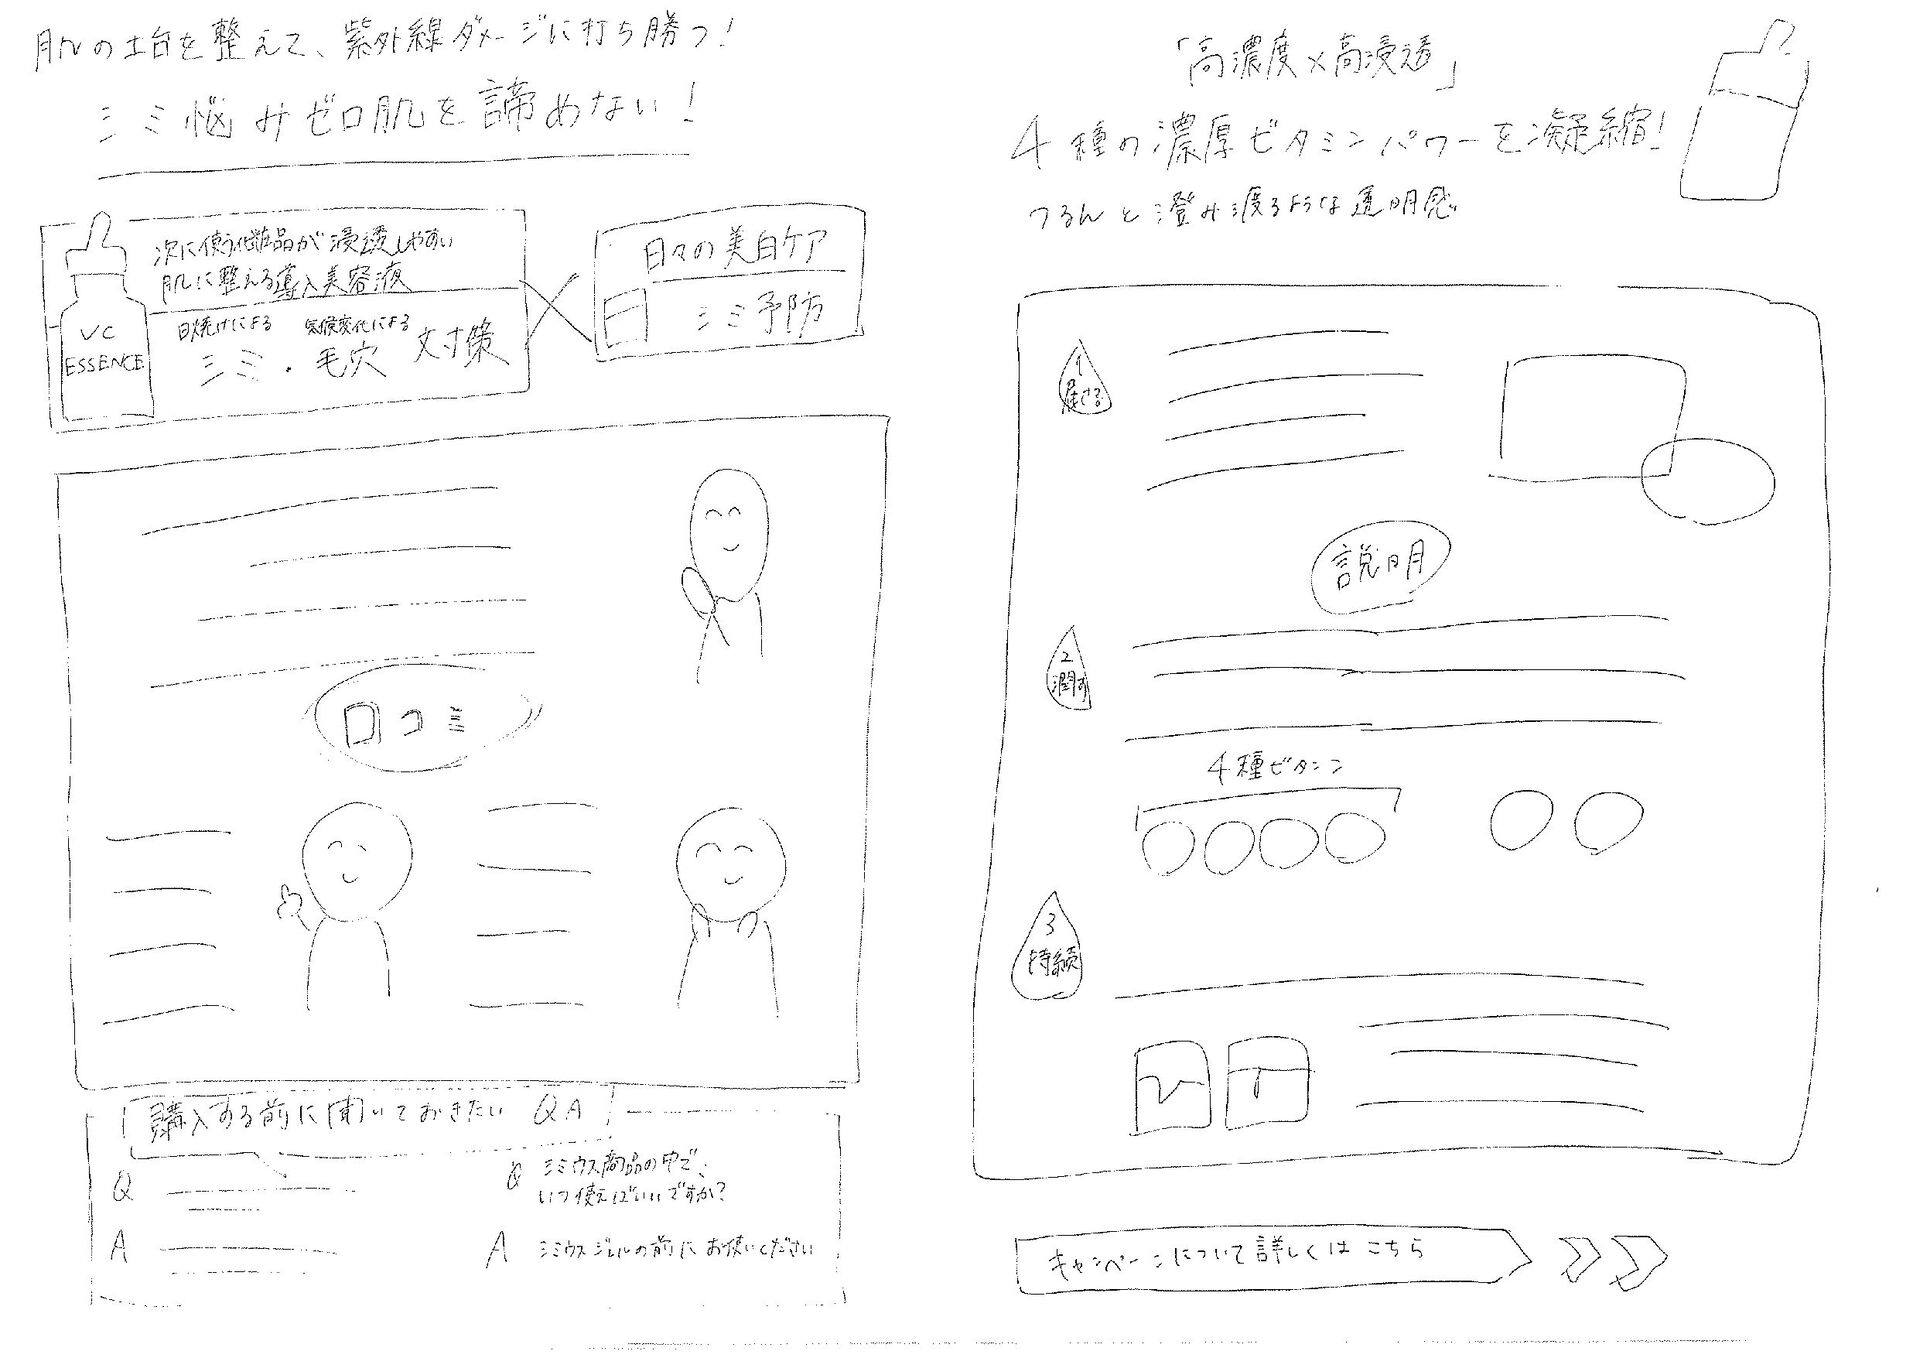 肌の土台を整えて、紫外線ダメージに打ち勝つ!
シミ悩みゼロ肌を諦めない!
次に使う化粧品が浸透しやすい
肌に整える導入美容液
VC
ESSENCE
日焼けによる 気候変化による
シミ・毛穴 対策
日々の美白ケア
シミ予防
口コミ
購入する前に聞いておきたい QA
Q
A
Q シミウス商品の中で、
いつ使えばいいですか?
A シミウスジェルの前にお使いください
「高濃度×高浸透」
4種の濃厚ビタミンパワーを凝縮!
つるんと澄み渡るような透明感
1
届ける
説明
2
潤す
4種ビタミン
3
持続
キャンペーンについて詳しくはこちら